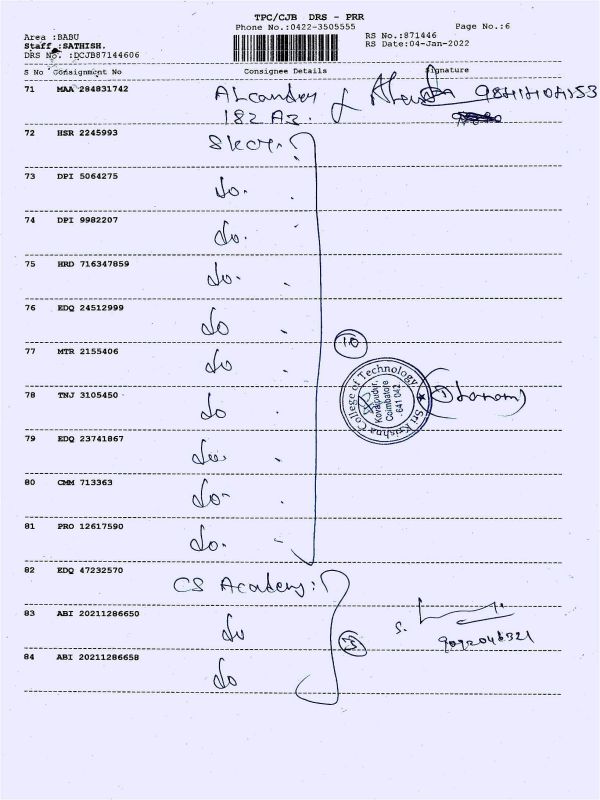 TPC/CJB DRS - PRR
Phone No.:0422-3505555 Page No.:6
Area :BABU RS No.:871446
Staff :SATHISH. RS Date:04-Jan-2022
DRS No. :DCJB87144606
S No Consignment No Consignee Details Signature
71 MAA 284831742
182 A3.
72 HSR 2245993
73 DPI 5064275 do.
74 DPI 9982207 do.
75 HRD 716347859 do.
76 EDQ 24512999 do
77 MTR 2155406 do
10
78 TNJ 3105450 do
Sri Krishna College of Technology
Kovaipudur,
Coimbatore
641 042
79 EDQ 23741867 do.
80 CMM 713363 do
81 PRO 12617590 do.
82 EDQ 47232570 CS Academy:
83 ABI 20211286650 do
3 S.
9092046321
84 ABI 20211286658 do